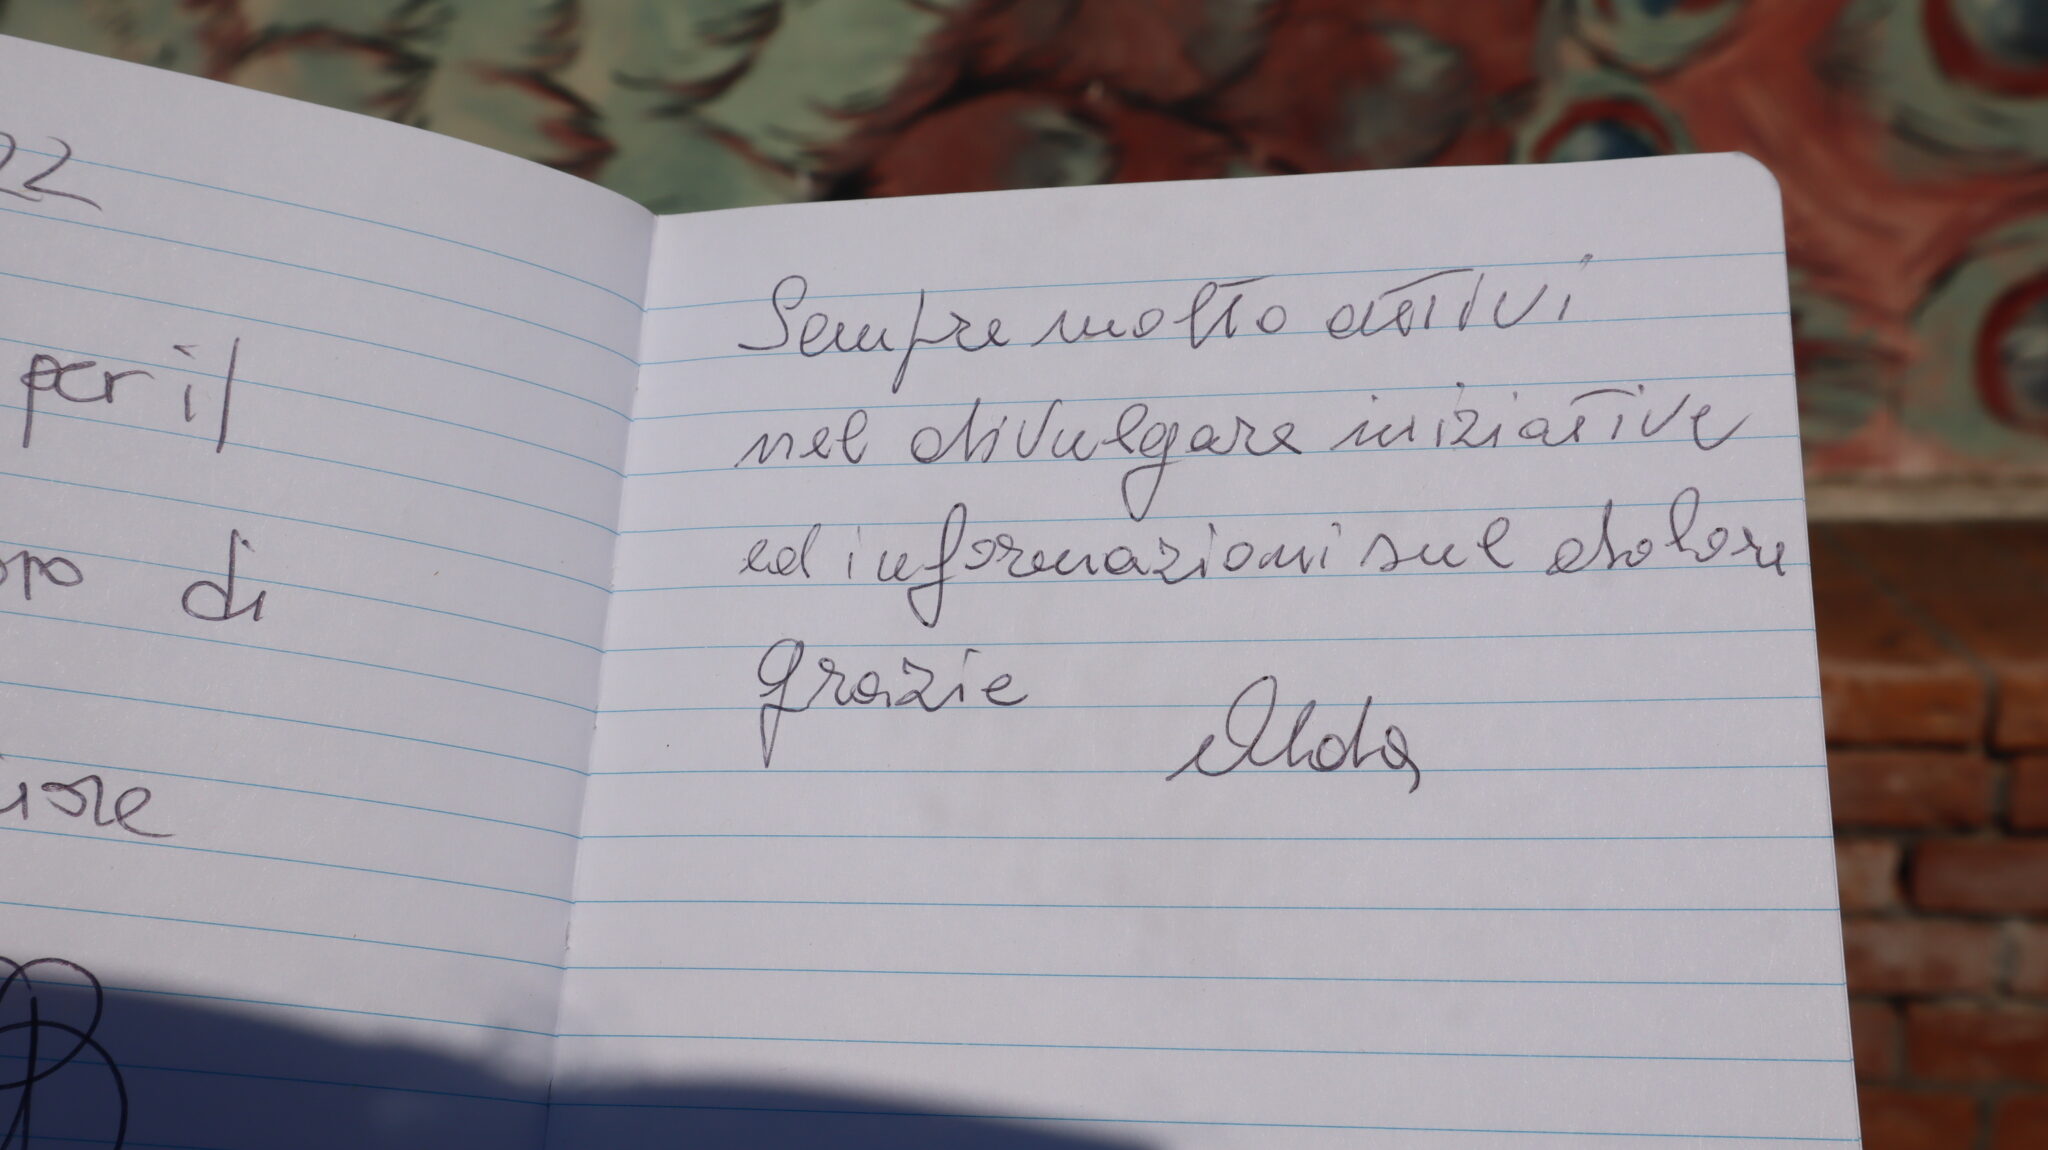 22
per il
di
Sempre molto attivi
nel divulgare iniziative
ed informazioni sul dolore
grazie
Alda